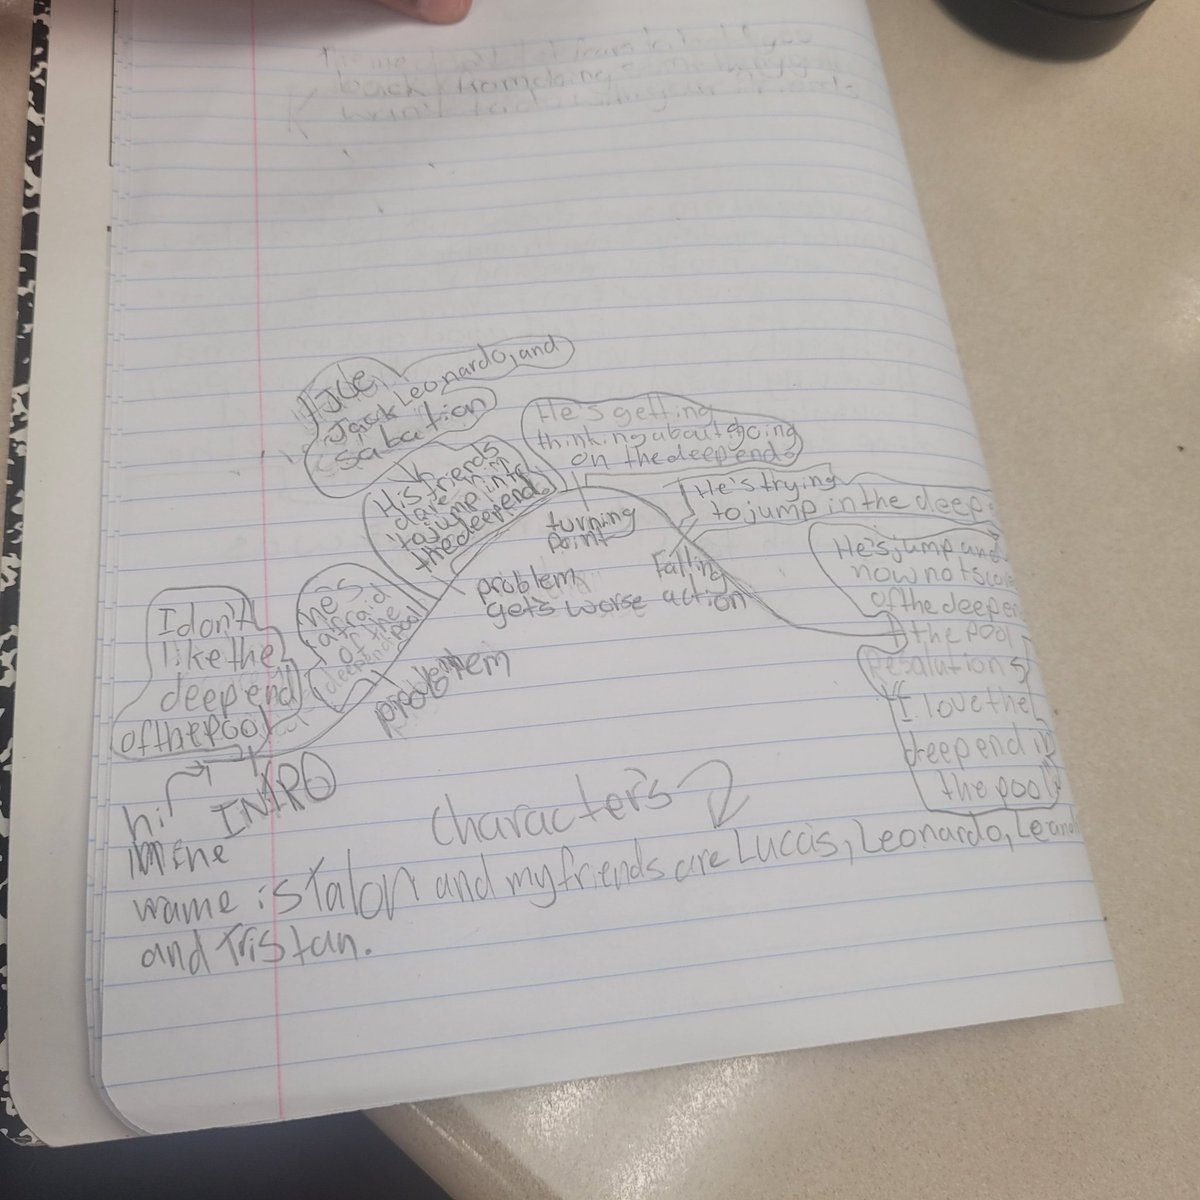 back from doing
Joe,
Jack Leonardo, and
sabation
He's getting
thinking about going
on the deep end.
His friends
dare him
to jump into
the deep end.
He's trying
to jump in the deep
turning
point
He's jump and
now not
of the deep
the pool
Falling
action
problem
gets worse
he's
afraid
of the
deep end
pool
I don't
like the
deep end
of the pool
problem
Resolution
I love the
deep end in
the pool
INTRO
hi
Characters
name is Talon and my friends are Luccas, Leonardo,
and Tristan.